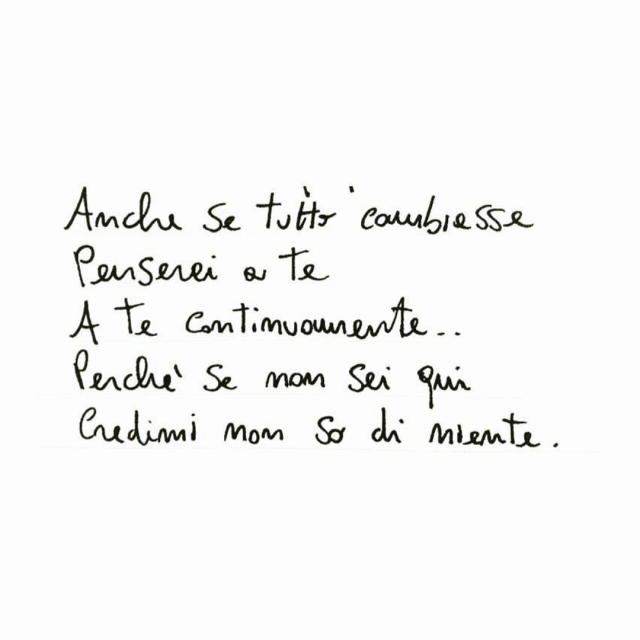 Anche se tutto cambiasse
Penserei a te
A te continuamente..
Perchè se non sei qui
Credimi non so di niente.